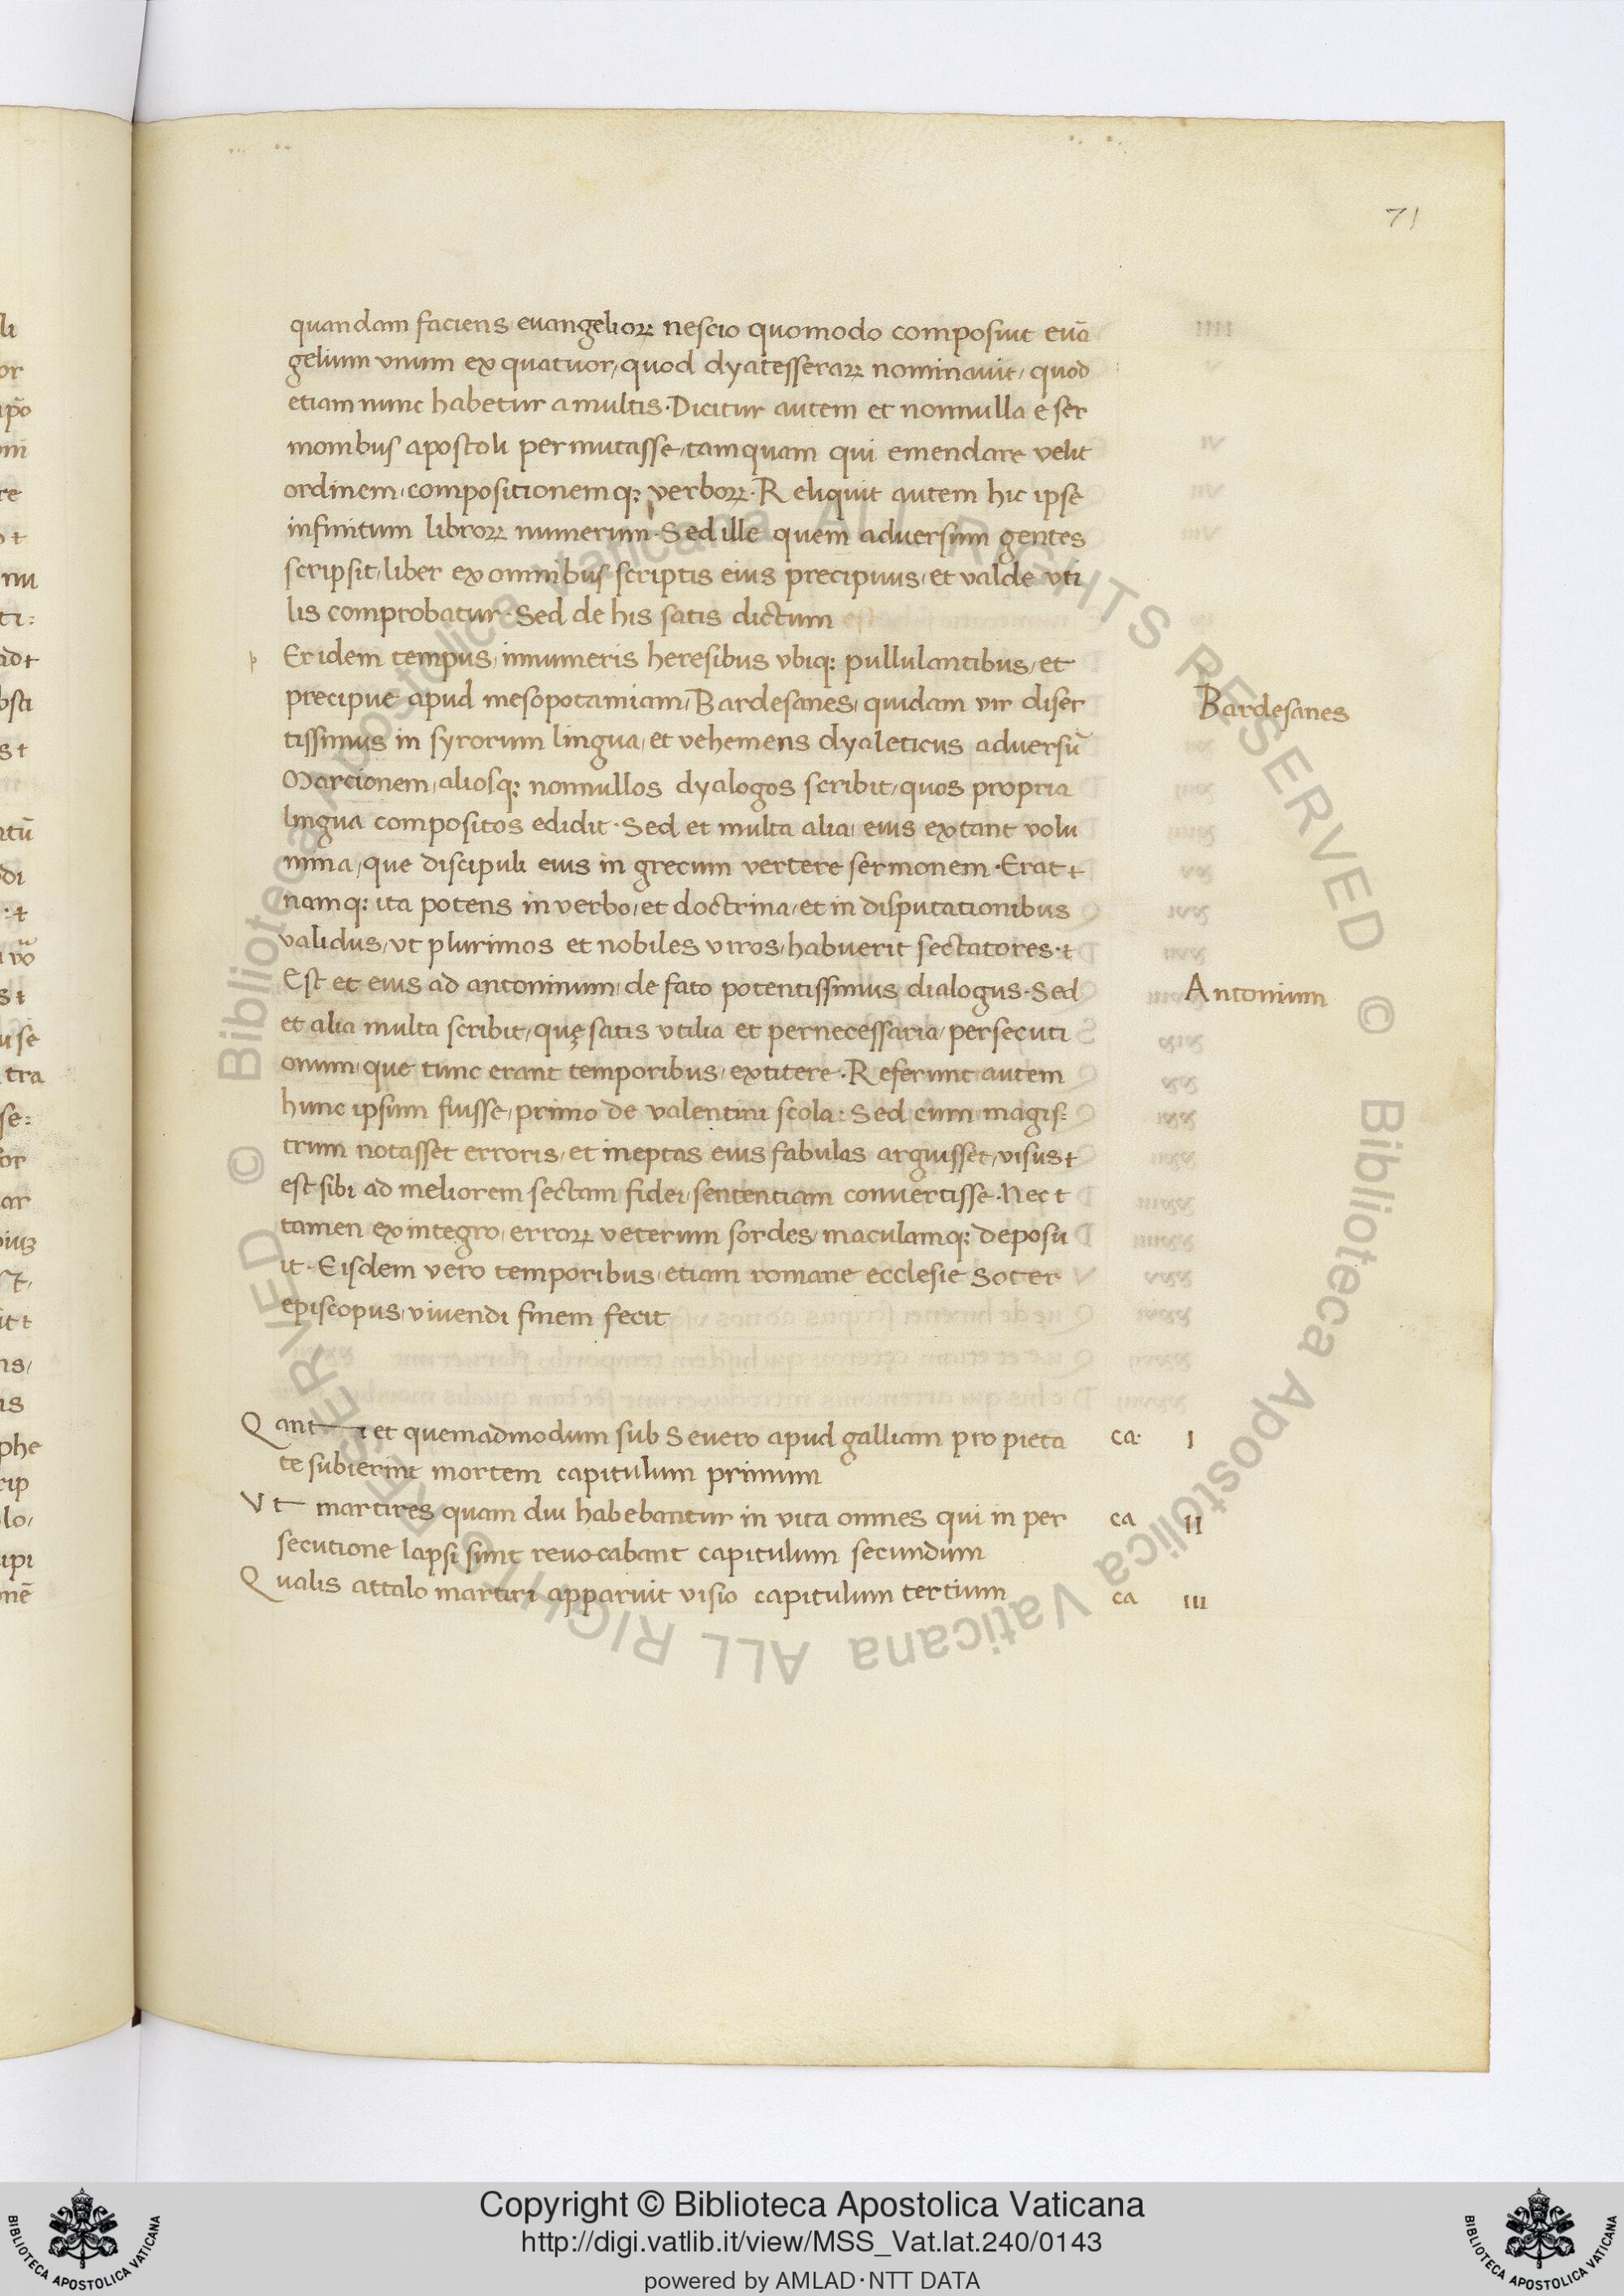 71
quandam faciens evangelioꝝ nescio quomodo composuit evā
gelium vnum ex quatuor, quod dyatesseraꝝ nominavit, quod
etiam nunc habetur a multis. Dicitur autem et nonnulla e ser
monibus apostoli permutasse, tamquam qui emendare velit
ordinem, compositionemq; verboꝝ. Reliquit autem hic ipse
infinitum libroꝝ numerum. Sed ille quem adversum gentes
scripsit, liber ex omnibus scriptis eius precipuus, et valde vti
lis comprobatur. Sed de his satis dictum
Er idem tempus, innumeris heresibus vbiq; pullulantibus, et
precipue apud mesopotamiam, Bardesanes, quidam vir diser
Bardesanes
tissimus in syrorum lingua, et vehemens dyaleticus adversū
Marcionem, aliosq; nonnullos dyalogos scribit, quos propria
lingua compositos edidit. Sed et multa alia, eius extant volu
mina, que discipuli eius in grecum vertere sermonem. Erat
namq; ita potens in verbo, et doctrina, et in disputationibus
validus, vt plurimos et nobiles viros, habuerit sectatores.
Est et eius ad antoninum, de fato potentissimus dialogus. Sed
Antonium
et alia multa scribit, quę satis vtilia et pernecessaria, persecuti
onum, que tunc erant temporibus, extitere. Referunt autem
hunc ipsum fuisse, primo de valentini scola. Sed cum magis
trum notasset erroris, et ineptas eius fabulas arguisset, visus
est sibi ad meliorem sectam fidei, sententiam convertisse. Nec
tamen ex integro, erroꝝ veterum sordes, maculamq; deposu
it. Eisdem vero temporibus, etiam romane ecclesie Soter
episcopus, vivendi finem fecit
Qant et quemadmodum sub Severo apud galliam pro pieta ca. I
te subierint mortem capitulum primum
Vt martires quam diu habebantur in vita omnes qui in per ca II
secutione lapsi sunt revocabant capitulum secundum
Qualis attalo martiri apparuit visio capitulum tertium ca III
Copyright © Biblioteca Apostolica Vaticana
http://digi.vatlib.it/view/MSS_Vat.lat.240/0143
powered by AMLAD·NTT DATA